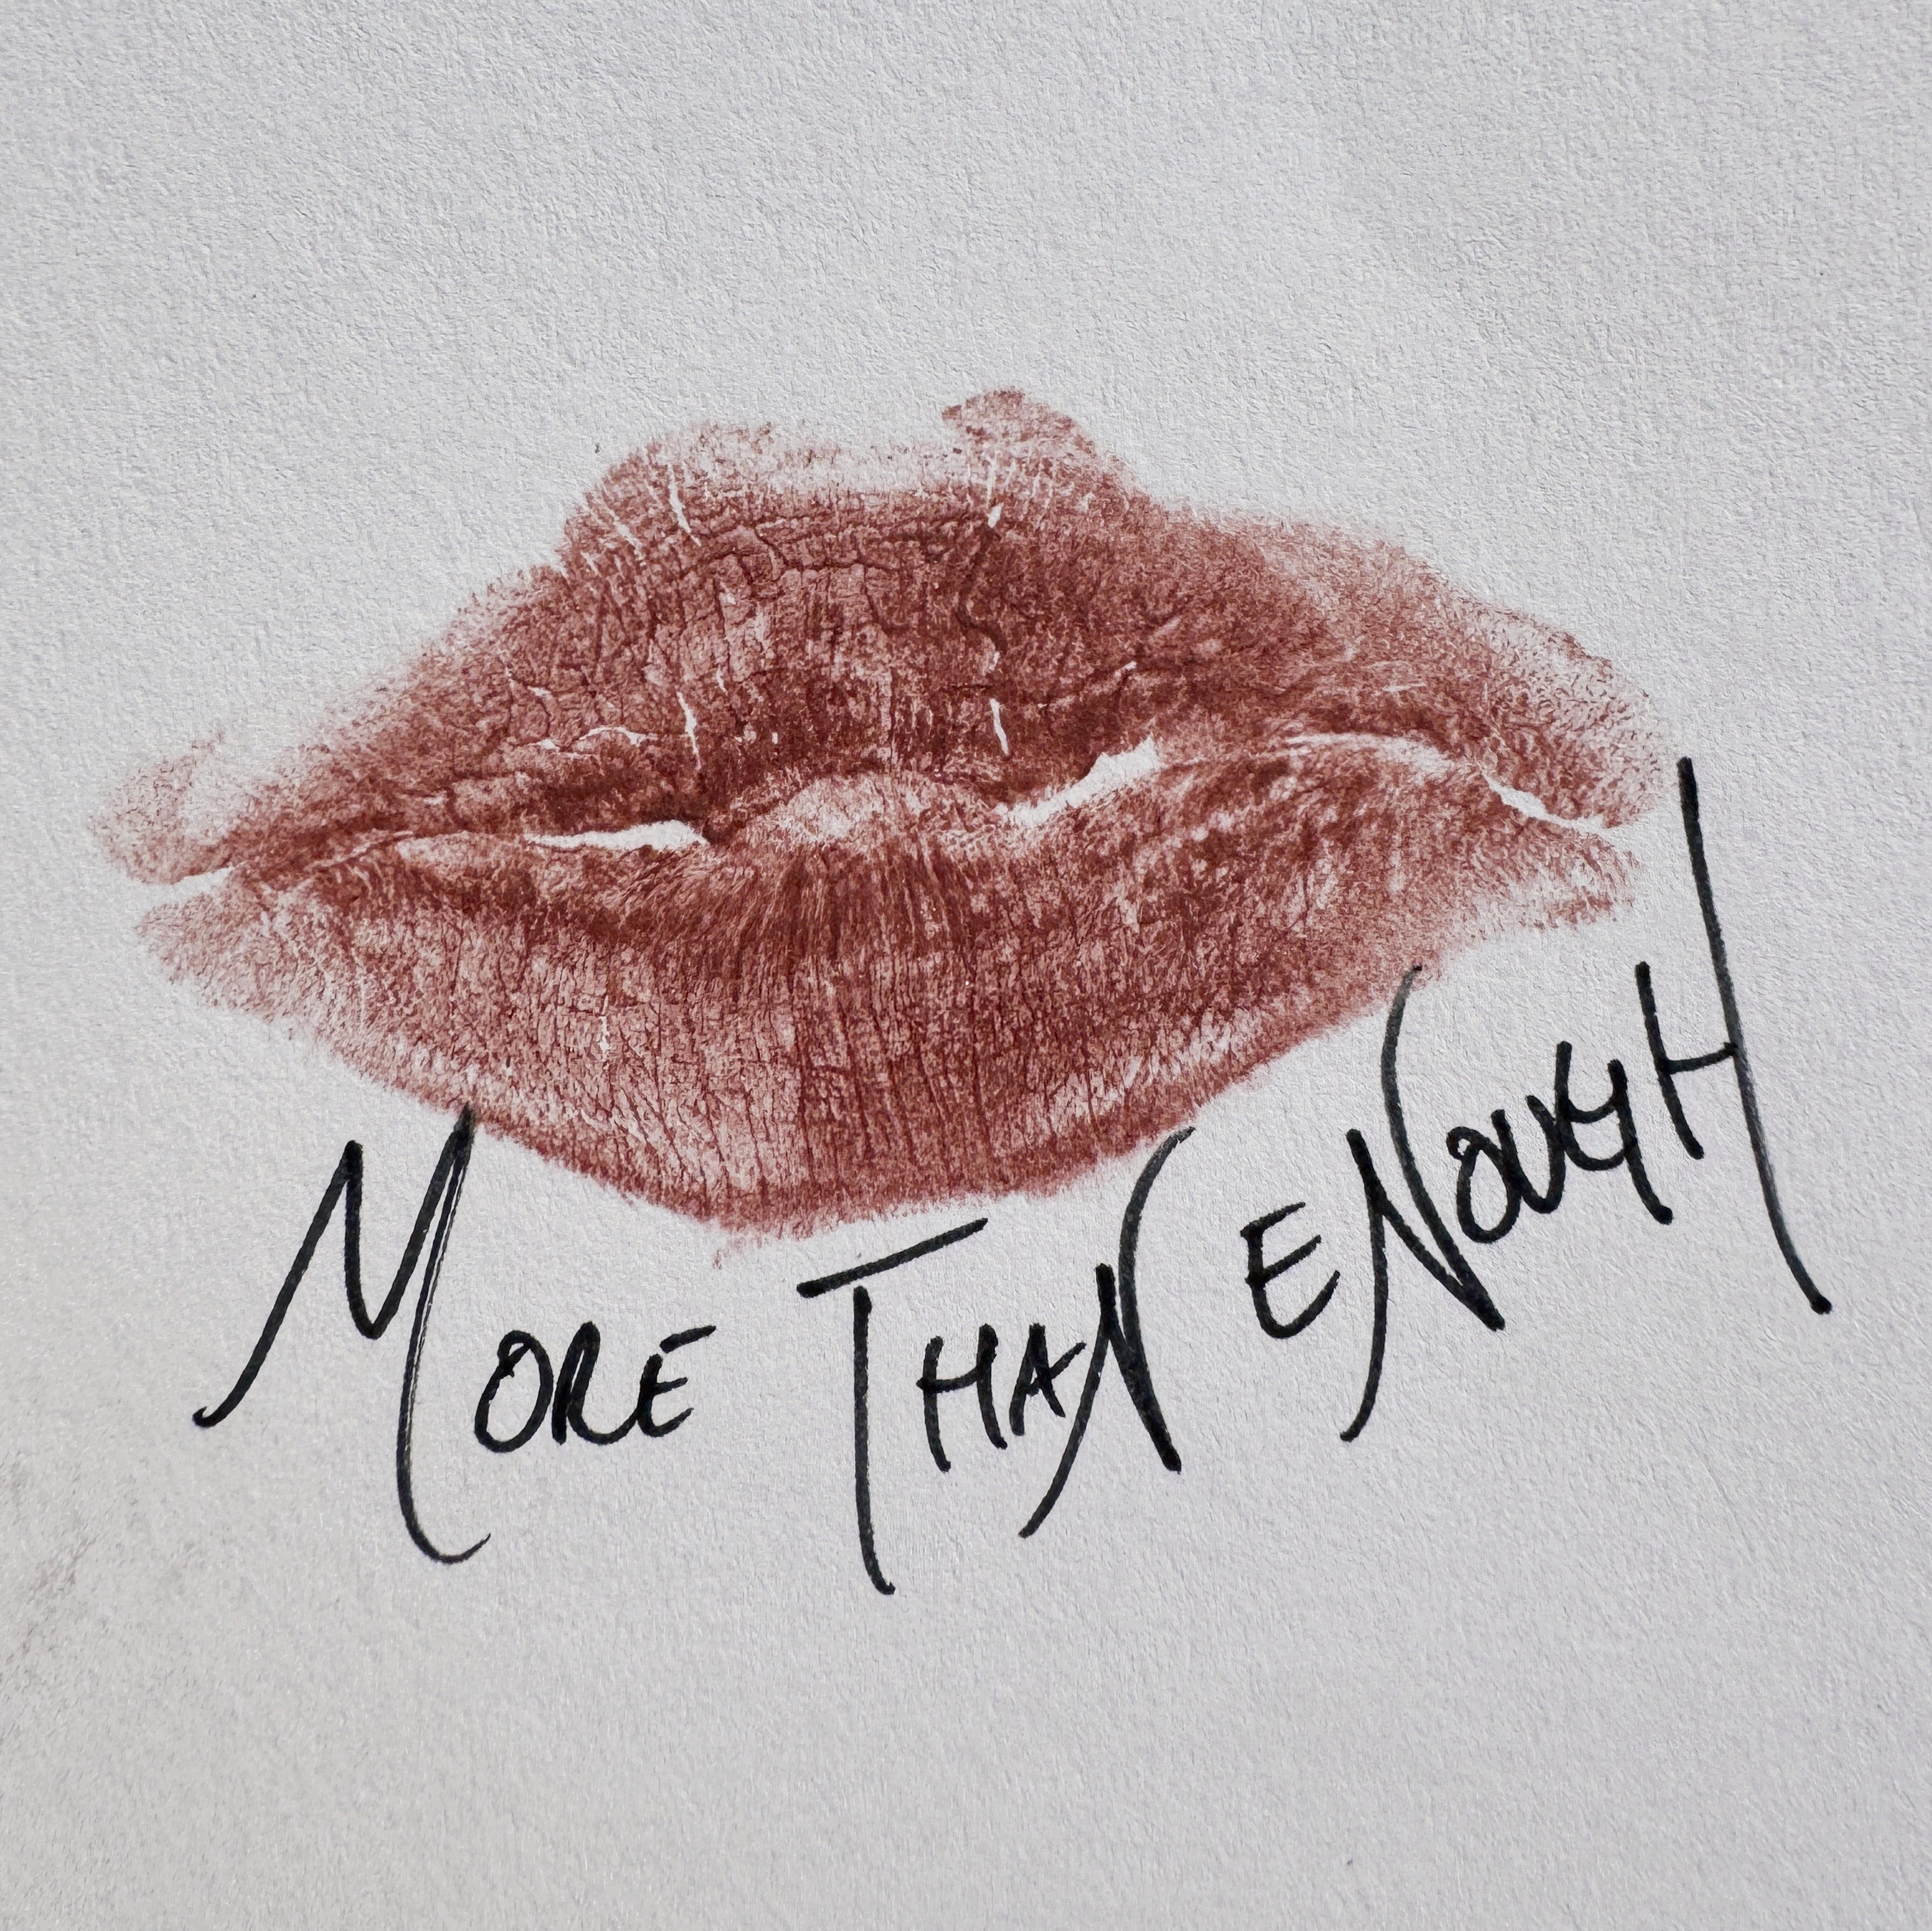 MORE THAN ENOUGH